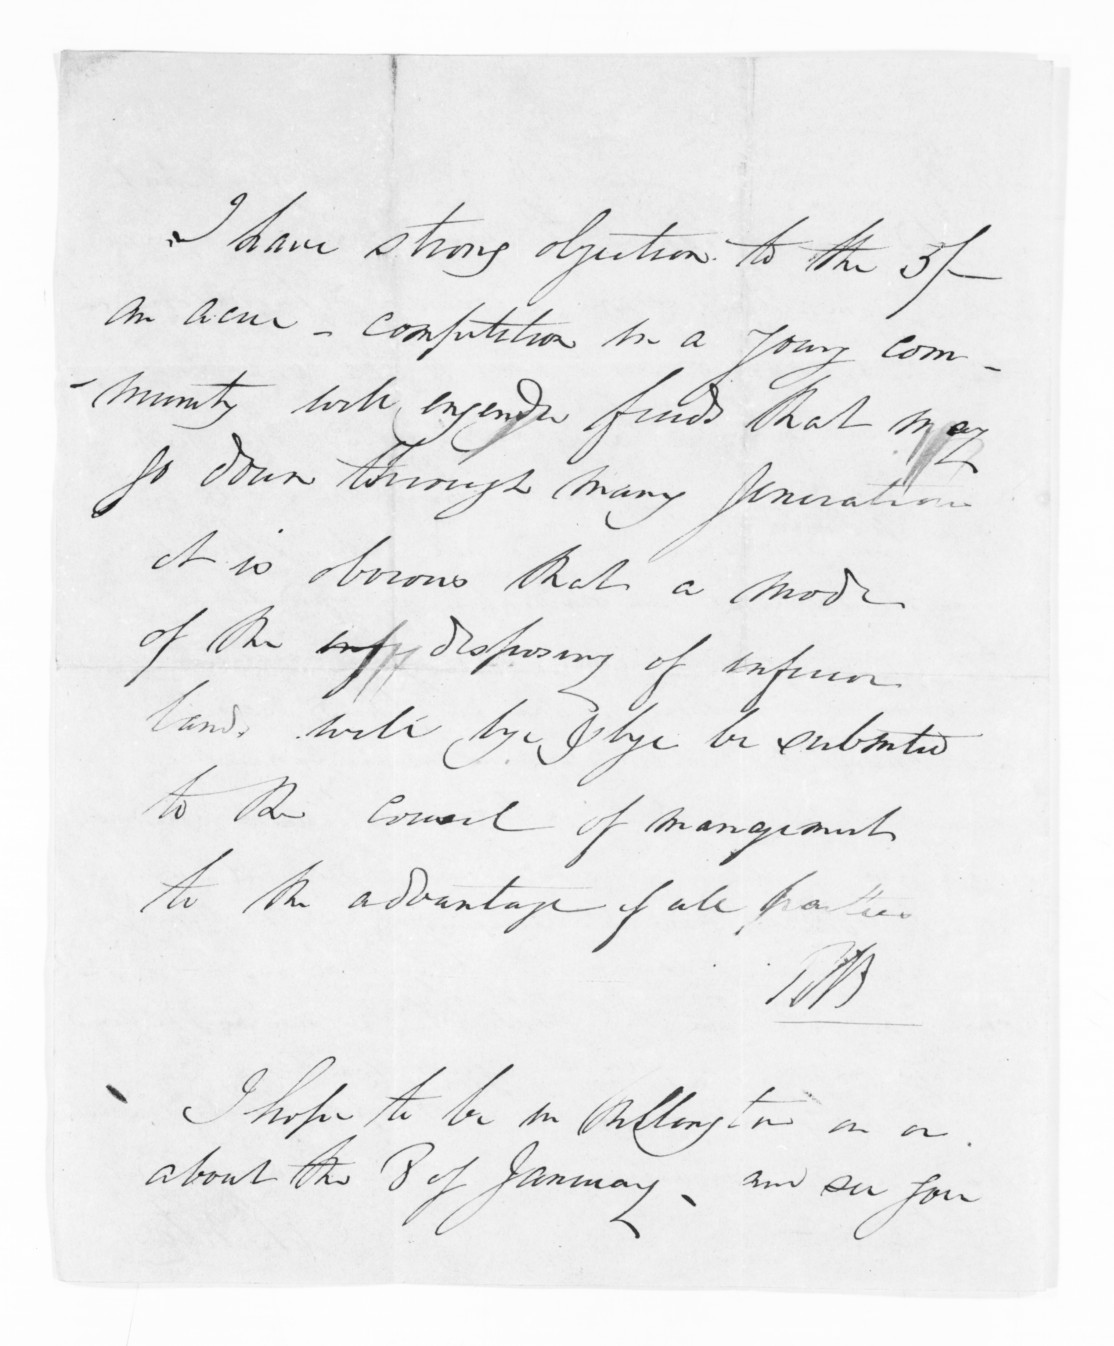 I have strong objection to the 5/-
an acre - competition in a young com-
-munity will engender feuds that may
go down through many generations
it is obvious that a mode
of the inf disposing of inferior
lands will bye & bye be submited
to the council of mangement
to the advantage of all parties
I hope to be in Wellington on or
about the 8 of January - and see you